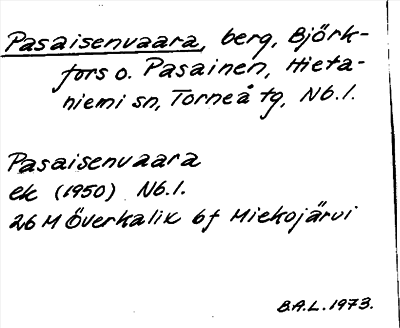 Pasaisenvaara, berg, Björk-
fors o. Pasainen, Hieta-
niemi sn, Torneå tg, Nb.l.
Pasaisenvaara
ek (1950) Nb.l.
26 M Överkalix 6f Miekojärvi
B.A.L. 1973.